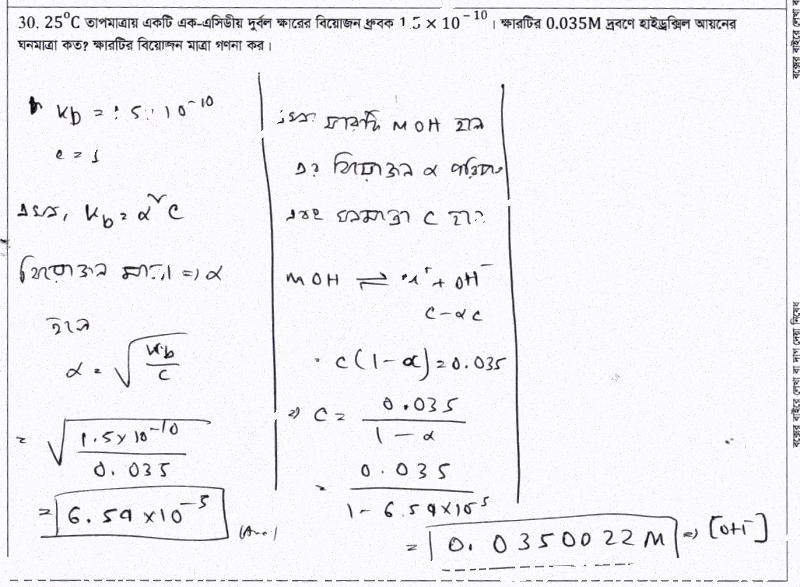 30. 25°C তাপমাত্রায় একটি এক-এসিডীয় দুর্বল ক্ষারের বিয়োজন ধ্রুবক 1 5 × 10⁻¹⁰ । ক্ষারটির 0.035M দ্রবণে হাইড্রক্সিল আয়নের
ঘনমাত্রা কত? ক্ষারটির বিয়োজন মাত্রা গণনা কর।
Kb = 1.5 × 10⁻¹⁰
এখন, Kb = α²C
বিয়োজন মাত্রা => α
হলে
α = √(Kb/C)
= √(1.5×10⁻¹⁰/0.035)
= 6.59 × 10⁻⁵
(Ans)
ক্ষারটি MOH হলে
বিয়োজন α
এবং ঘনমাত্রা C
MOH ⇌ M⁺ + OH⁻
C-αC
C(1-α) = 0.035
=> C = 0.035/(1-α)
= 0.035/(1-6.59×10⁻⁵)
= 0.0350022M => [OH⁻]
বক্সের বাইরে লেখা বা দাগ দেয়া নিষেধ